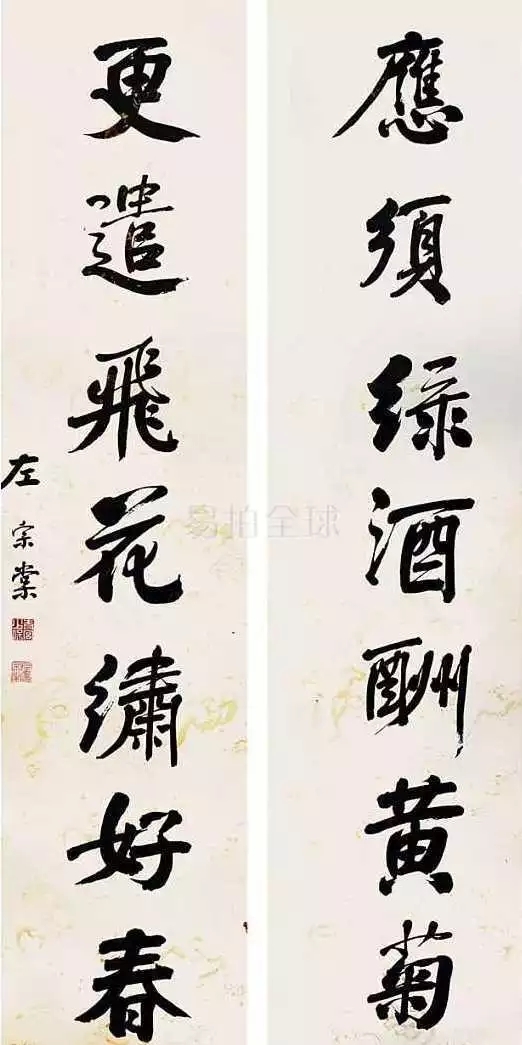 應須綠酒酬黃菊
更遣飛花繡好春
左宗棠
易拍全球